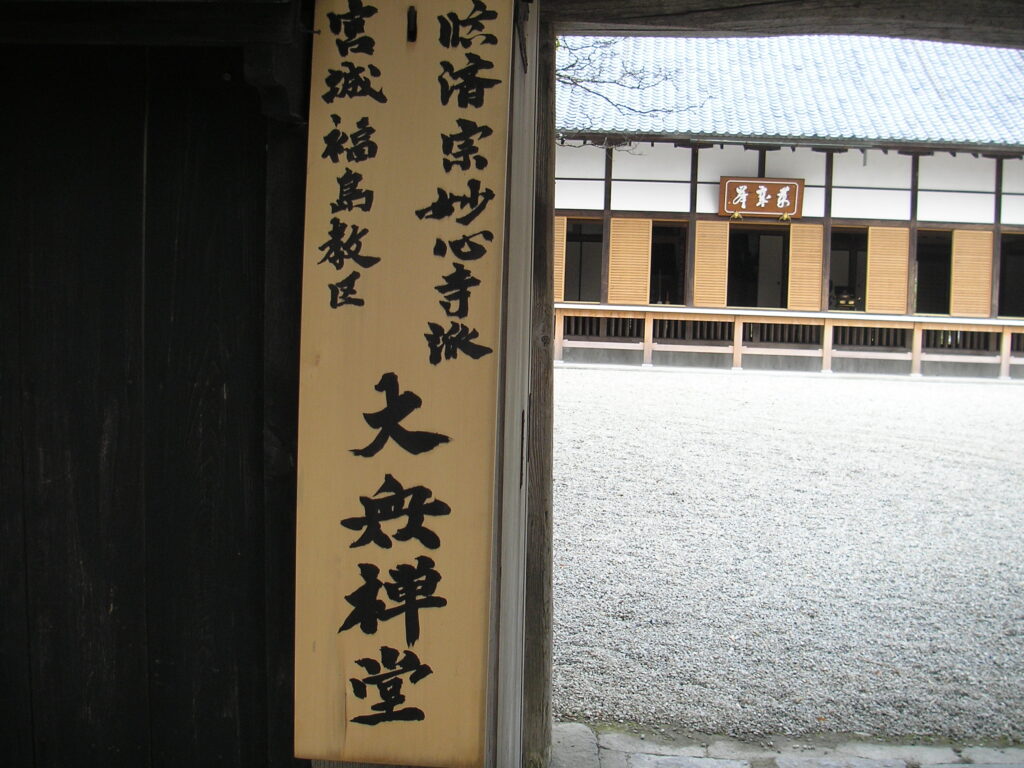 臨済宗妙心寺派
宮城福島教区
大無禅堂